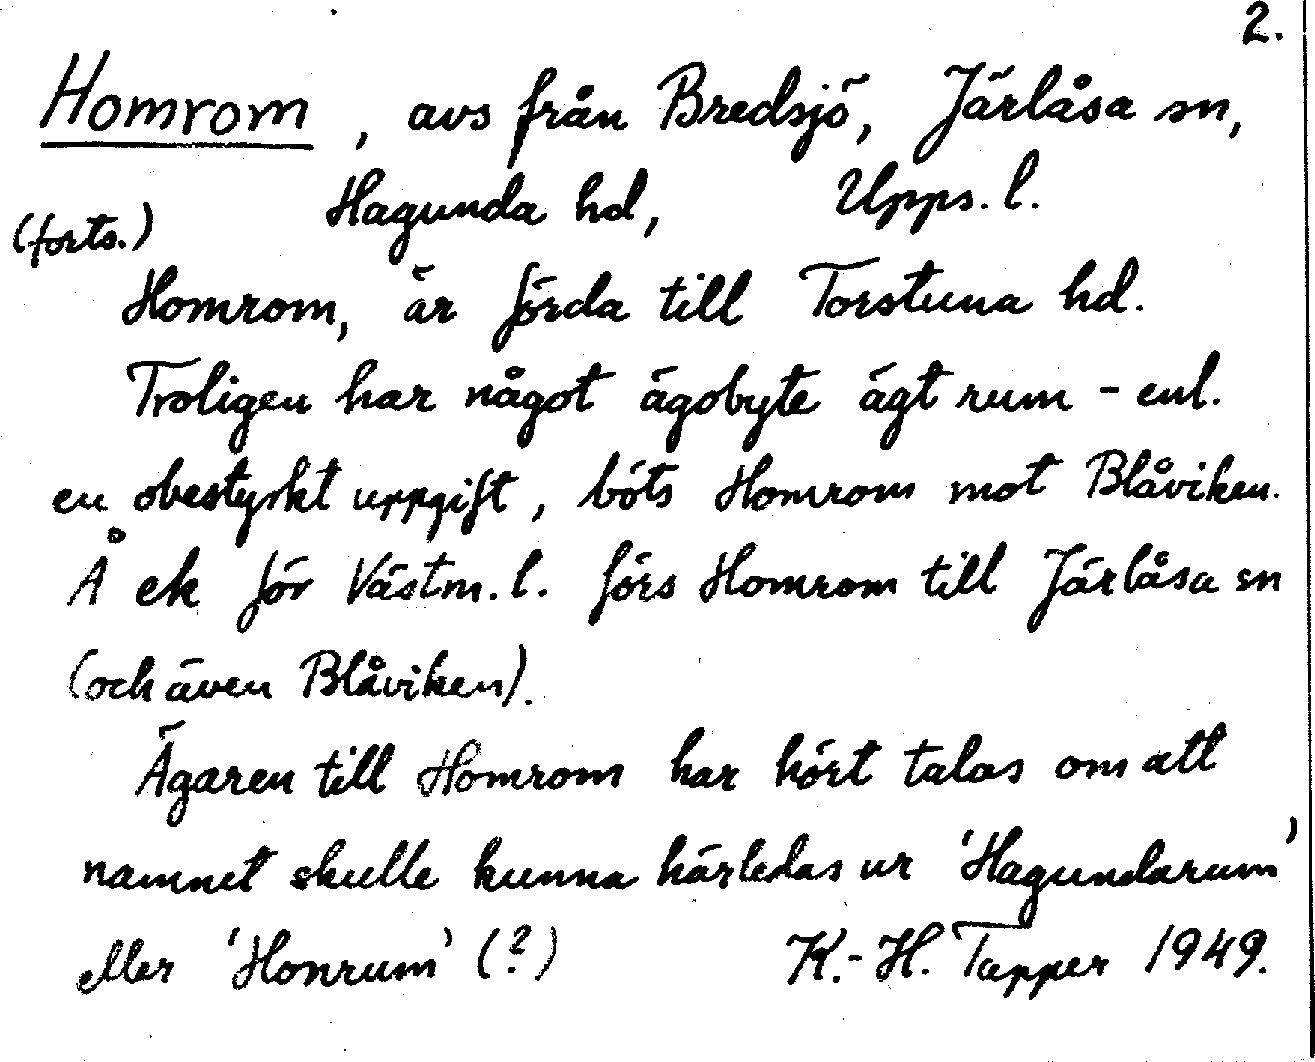 2.
Homrom, avs från Bredsjö, Järlåsa sn,
Hagunda hd, Upps. l.
(forts.)
Homrom, är förda till Torstuna hd.
Troligen har något ägobyte ägt rum - enl.
en obestyrkt uppgift, böts Homrom mot Blåviken.
Å ek för Västm. l. förs Homrom till Järlåsa sn
(och även Blåviken).
Ägaren till Homrom har hört talas om att
namnet skulle kunna härledas ur 'Hagundarum'
eller 'Honrum' (?) K.-H. Tapper 1949.